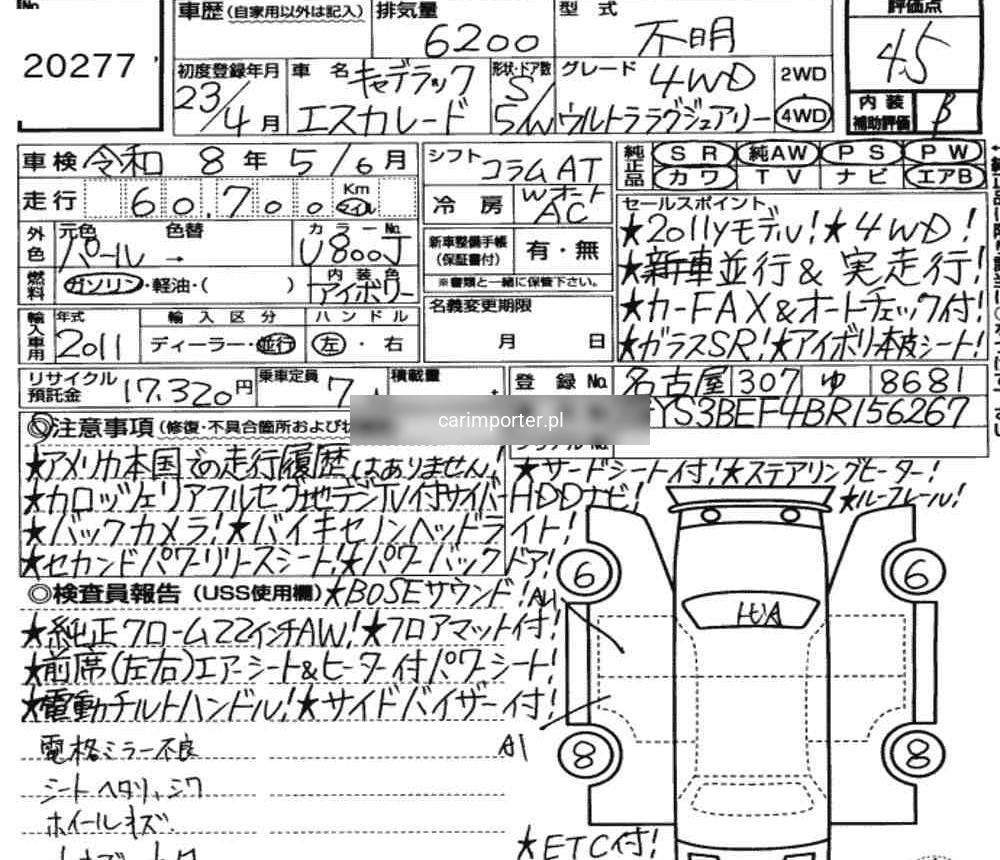 No.
20277
車歴(自家用以外は記入)
排気量
6200
型 式
不明
評価点
4.5
初度登録年月
23/4月
車 名
キャデラック
エスカレード
形状・ドア数
S/5W
グレード
4WD
ウルトララグジュアリー
2WD
4WD
内 装
補助評価
B
車検 令和 8 年 5/6 月
シフト コラムAT
純正品
SR 純AW PS PW
カワ TV ナビ エアB
走行 60.700 Km マイル
冷 房 Wオート AC
セールスポイント
★2011yモデル!★4WD!
外色
元色 色替
パール →
カラーNo.
U800J
新車整備手帳
(保証書付)
有・無
★新車並行&実走行!
燃料
ガソリン・軽油・( )
内 装 色
アイボリー
※書類と一緒に保管下さい。
★カーFAX&オートチェック付!
輸入車用
年式
2011
輸 入 区 分
ディーラー・並行
ハ ン ド ル
左・右
名義変更期限
月 日
★ガラスSR!★アイボリ本皮シート!
リサイクル
預託金
17,320円
乗車定員
7人
積載量
登 録 No.
名古屋 307 ゆ 8681
YS3BEF4BR156267
carimporter.pl
◎注意事項(修復・不具合箇所および
★アメリカ本国での走行履歴はありません!
★サードシート付!★ステアリングヒーター!
★カロッツェリアフルセグ地デジTV付サイバーHDDナビ!
★ルーフレール!
★バックカメラ!★バイキセノンヘッドライト!
★セカンドパワーリリースシート!★パワーバックドア!
6
6
◎検査員報告(USS使用欄)★BOSEサウンド!
A1
★純正クローム22インチAW!★フロアマット付!
★前席(左右)エアーシート&ヒーター付パワーシート!
★電動チルトハンドル!★サイドバイザー付!
電格ミラー不良
A1
8
8
シートヘタリ、シワ
ホイールキズ
★ETC付!